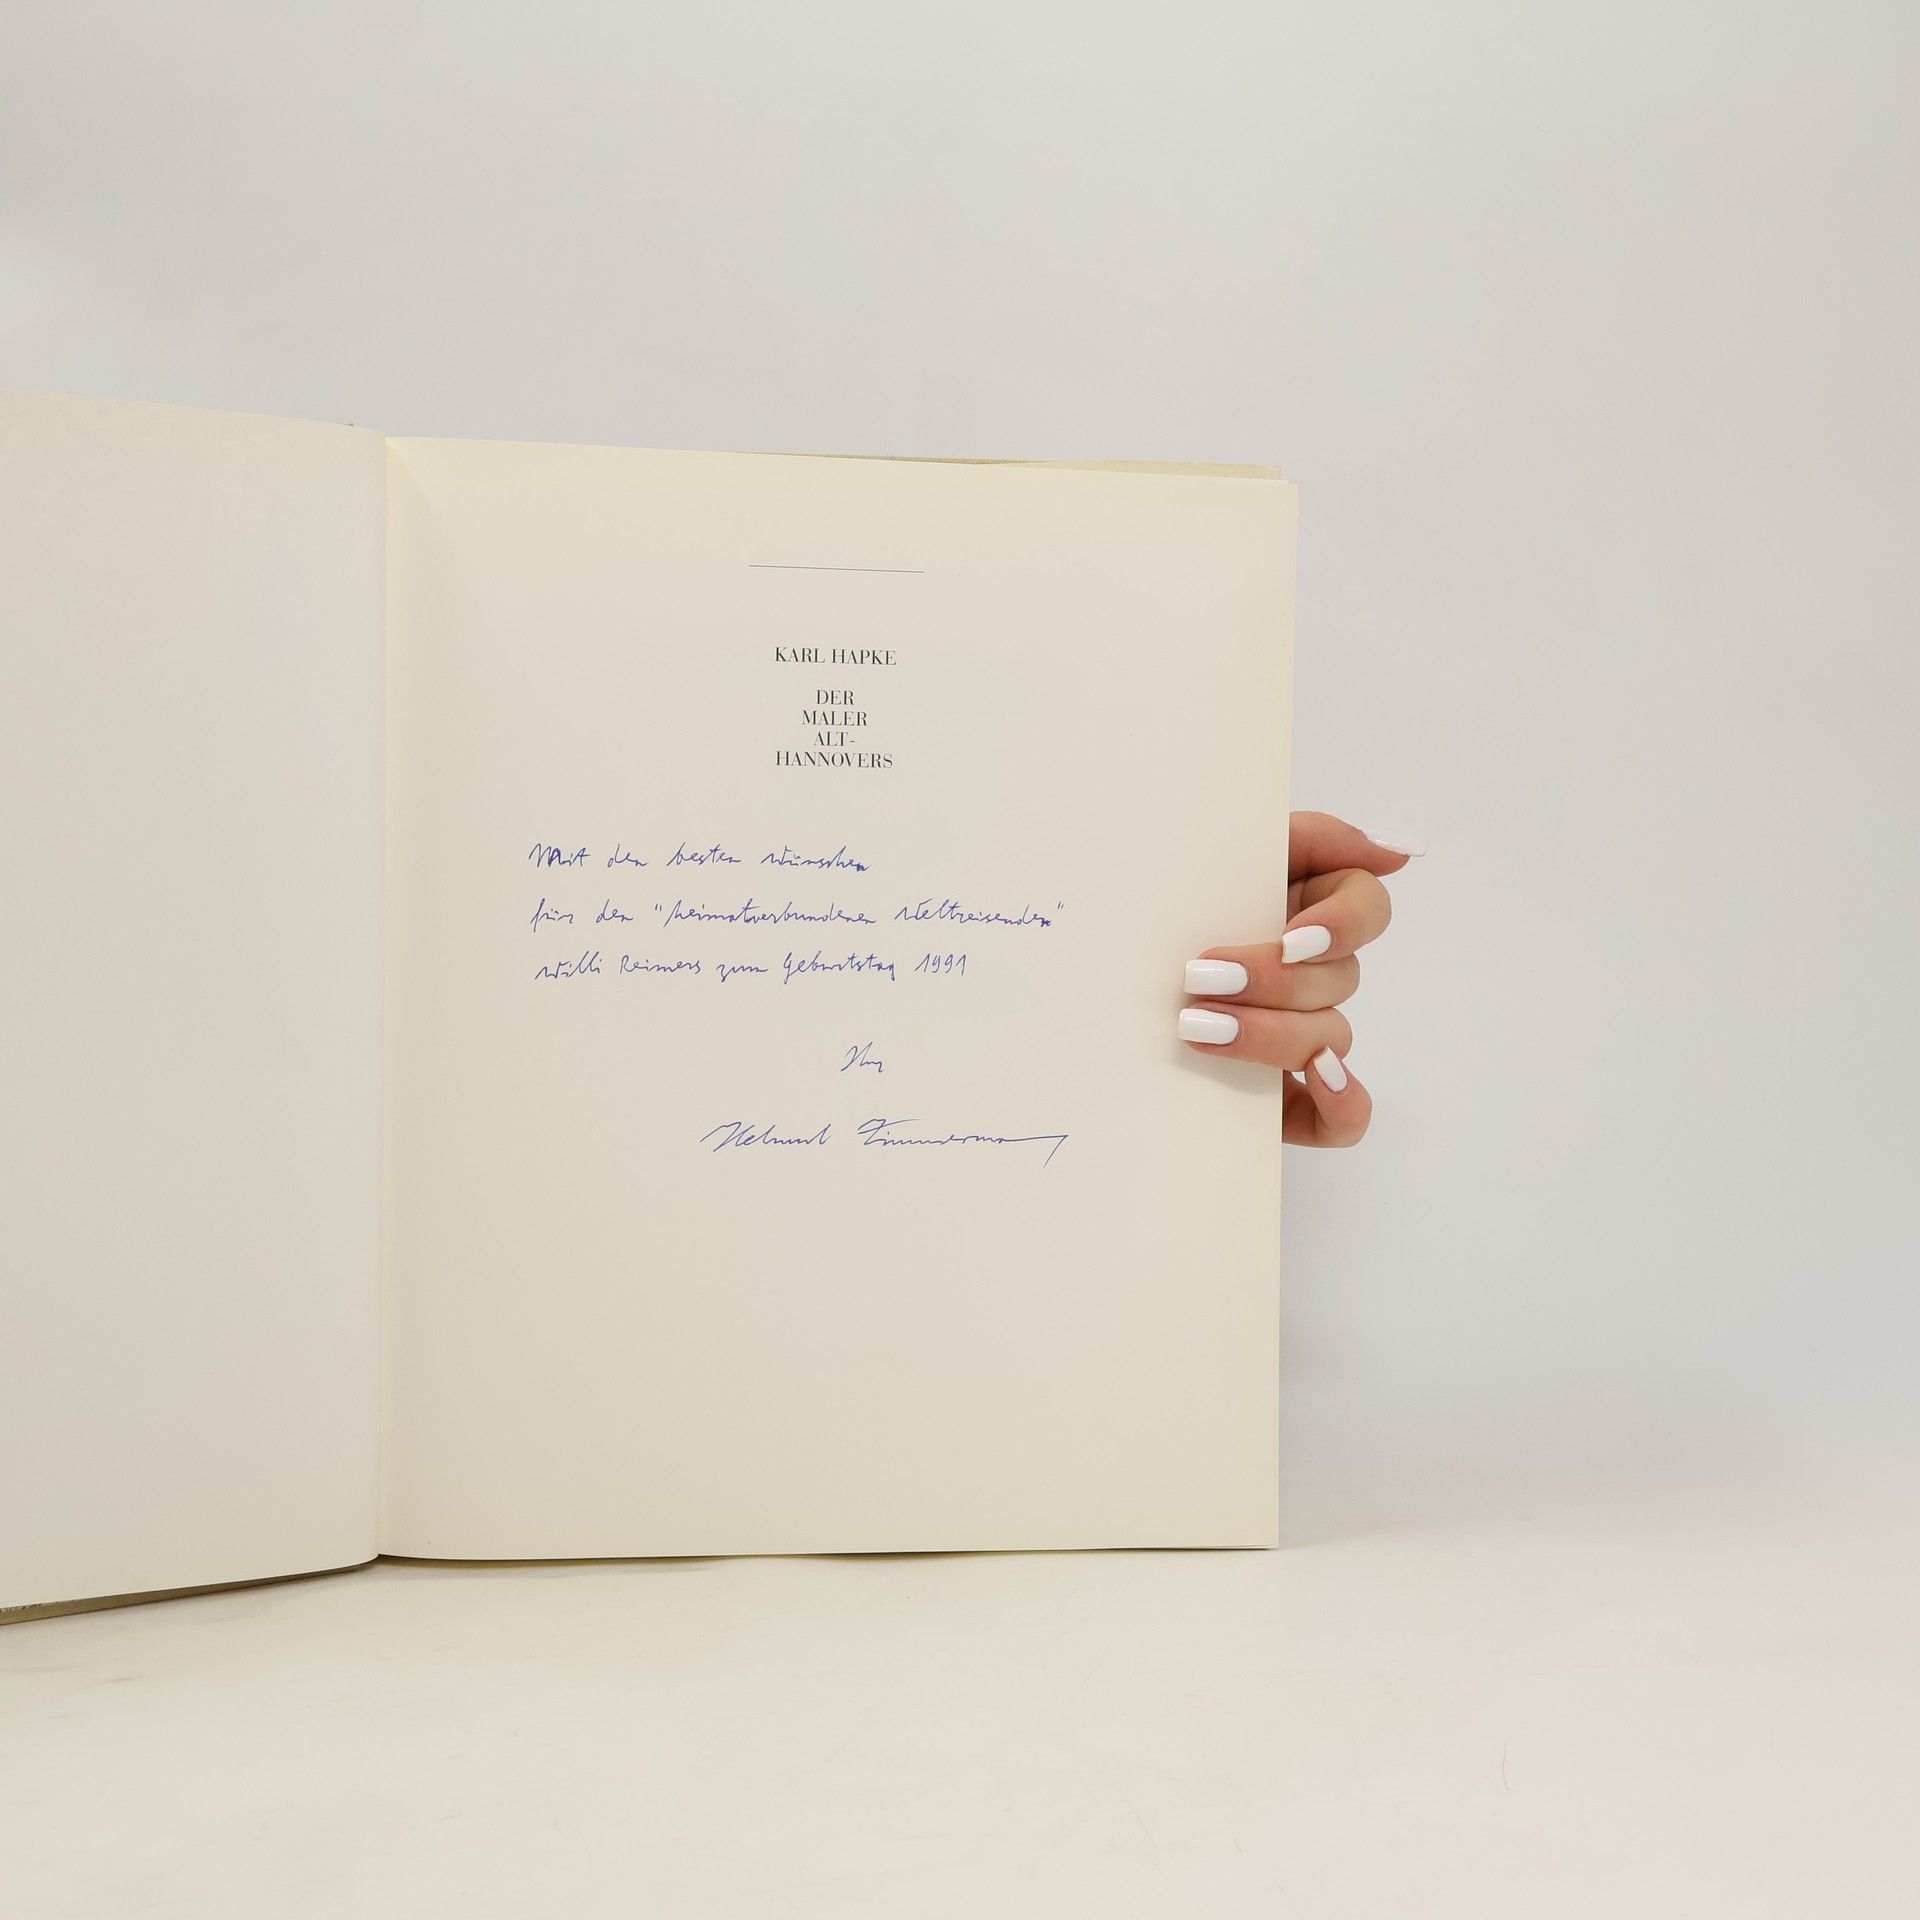 KARL HAPKE
DER
MALER
ALT-
HANNOVERS
Mit den besten Wünschen
für den "heimatverbundenen Weltreisenden"
Willi Reimers zum Geburtstag 1991
Ihr
Helmut Zimmermann